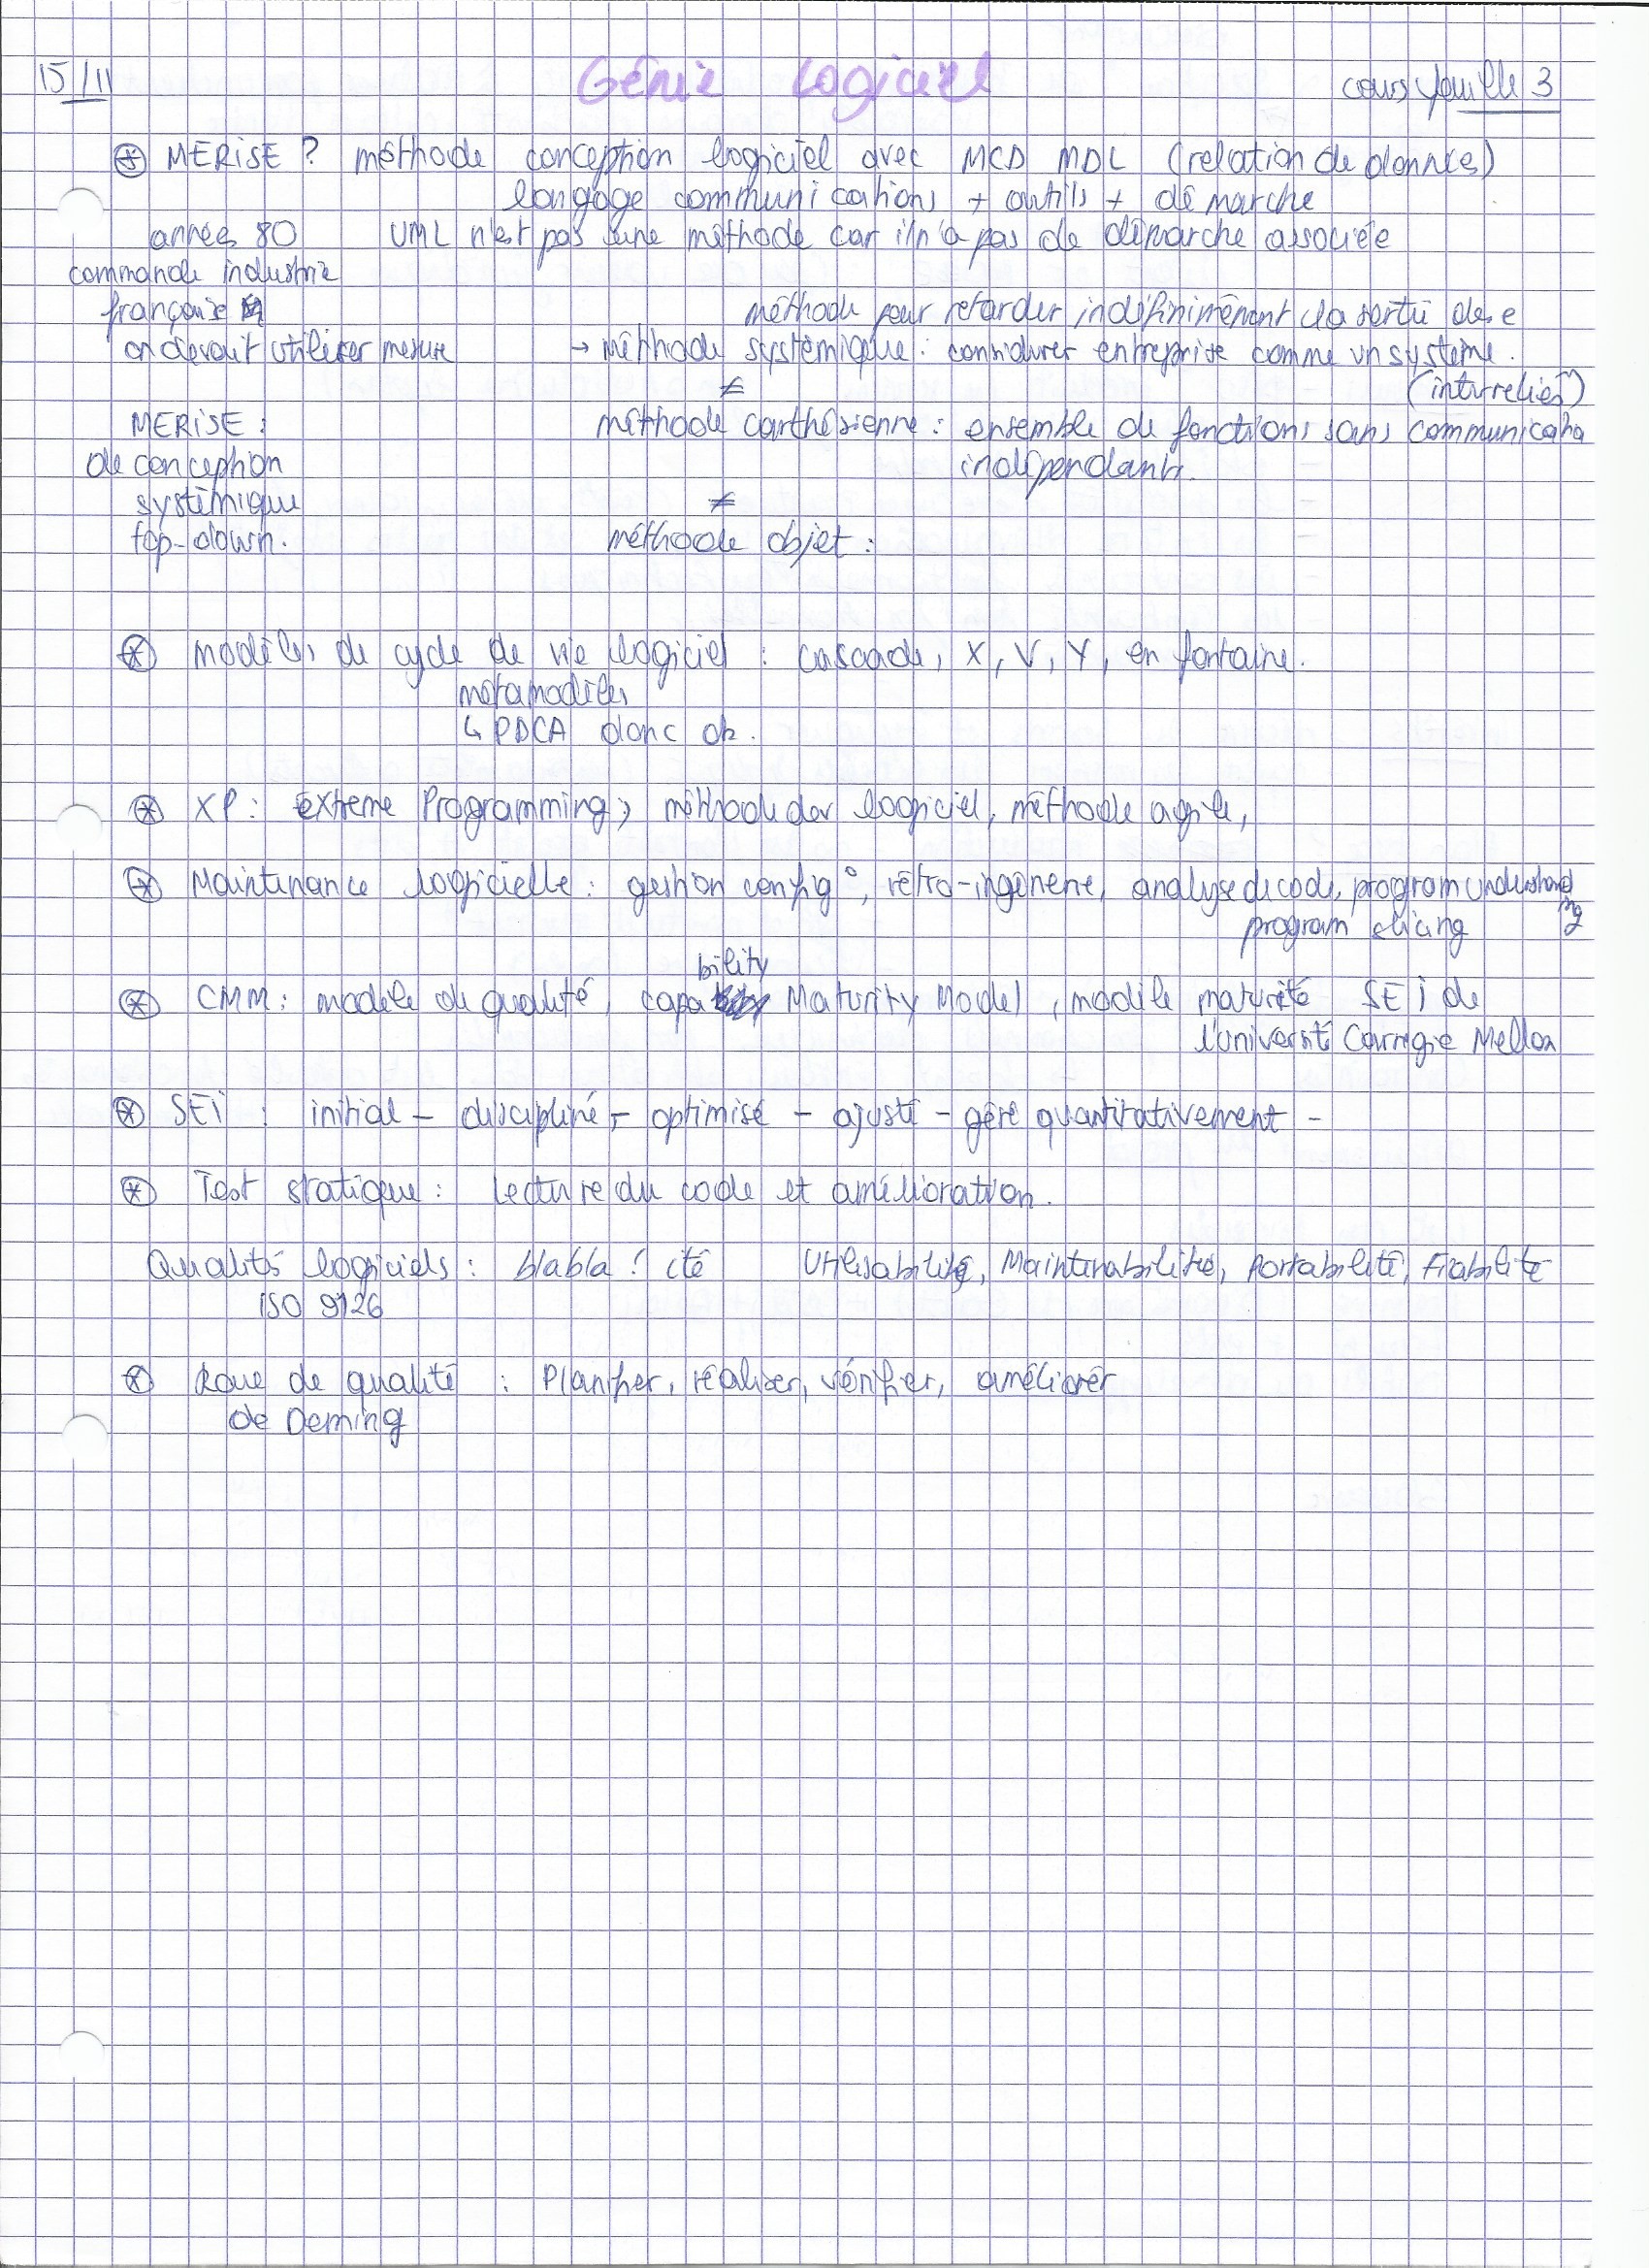 15/11
Génie Logiciel
cours feuille 3
MERISE ? méthode conception logiciel avec MCD MDL (relation de données)
langage communications + outils + démarche
années 80 UML n'est pas une méthode car il n'a pas de démarche associée
commande industrie
française
méthode pour retarder indéfiniment la sortie
on devait utiliser → méthode systémique : considérer entreprise comme un système.
(interreliés)
≠
MERISE : méthode carthésienne : ensemble de fonctions sans communicatio
de conception indépendants.
systémique ≠
top-down. méthode objet :
modèles de cycle de vie logiciel : cascade, X, V, Y, en fontaine.
métamodèles
↳ PDCA donc ok.
XP : extreme Programming, méthode dev logiciel, méthode agile,
Maintenance logicielle : gestion config°, rétro-ingénerie, analyse de code, program understanding
program slicing
CMM : modèle de qualité, capability Maturity Model, modèle maturité SEI de
l'université Carnegie Mellon
SEI : initial - discipliné - optimisé - ajusté - géré quantitativement -
Test statique : Lecture du code et amélioration.
Qualités logiciels : blabla ! ité Utilisabilité, Maintenabilité, Portabilité, Fiabilité
ISO 9126
Roue de qualité : Planifier, réaliser, vérifier, améliorer
de Deming